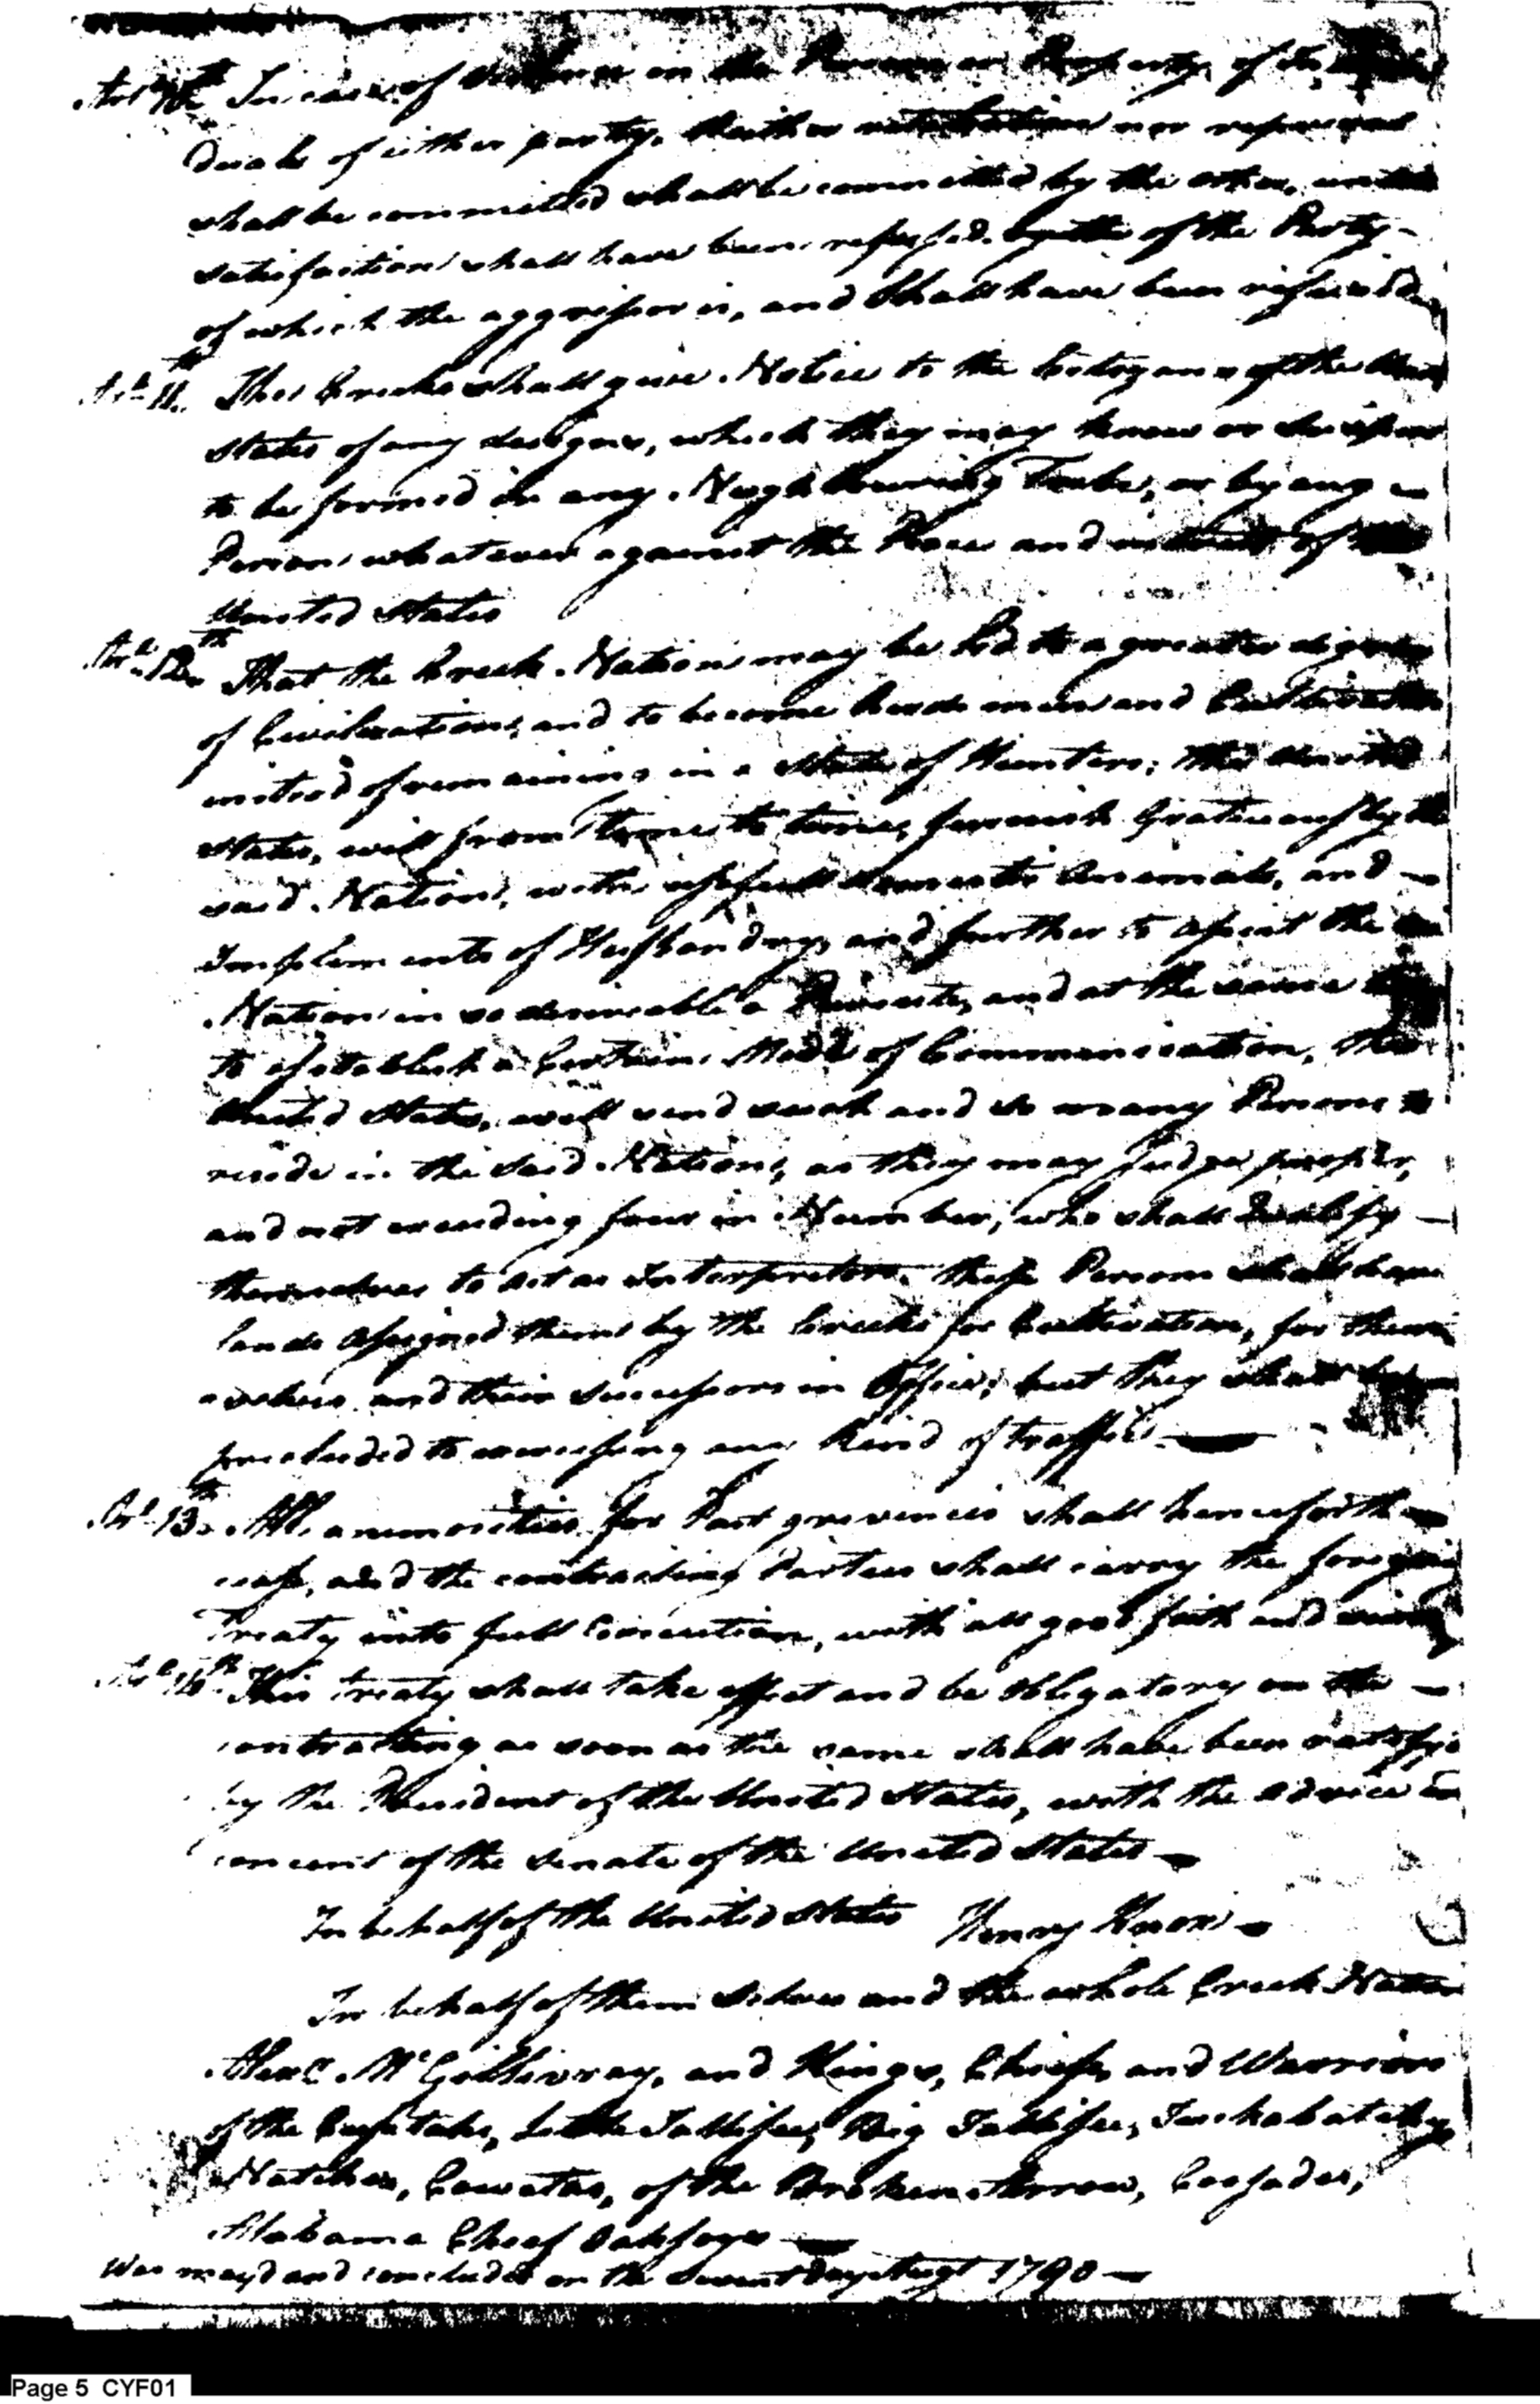 Art 10th In case of violence on the Persons or Property of
duals of either party, Neither retaliation nor reprisal
shall be committed shall be committed by the other, untill
satisfaction shall have been refused. of the Party
of which the aggressor is, and Shall have been refused
Art 11th The Creeks shall give Notice to the Citozans of the
States of any designs, which they may know or suspect
to be formed in any Neighbouring Tribe, or by any
Person whatever against the Peace and interest of the
United States
Art. 12th That the Creek Nation may be led to a greater degree
of Civilization, and to become herds men and Cultivators
insted of remaining in a State of Hunters; the United
States, will from time to time, furnish Gratiously the
said Nation, with usefull domestic Animals, and
Implements of Husbandry, and further to assist the
Nation in so desireable a Persuits, and at the same
to establish a Certain Mode of Communication, the
United States, will send such and so many Persons to
reside in the said Nation, as they may judge proper,
and not exceeding four in Number, who shall Qualify
themselves to act as Interpreters. these Persons shall have
lands assigned them by the Creeks for Cultivation, for them
selves and their successors in Office; but they shall be
precluded to exercising any Kind of traffic
Art. 13th All animosities for Past grevences shall henceforth
cease, and the contracting Parties shall carry the foregoing
Treaty into full Execution, with all good faith and
Art 14th This treaty shall take effect and be obligatory on the
contracting as soon as the same shall have been ratifyd
by the President of the United States, with the advice
concent of the Senate of the United States
In behalf of the United States Henry Knox
In behalf of them Selves and the whole Creek Nation
Alexr McGillivray, and Kings, Chiefs, and Warriors
of the Cusetahs, Little Tallisee, Big Tallisee, Tuckabatchy
Natches, Cowetas, of the Broken Arrow, Coosades,
Alabama Chief Oaksoys
Was mayd and concluded on the Sevent Day Augt 1790
Page 5 CYF01